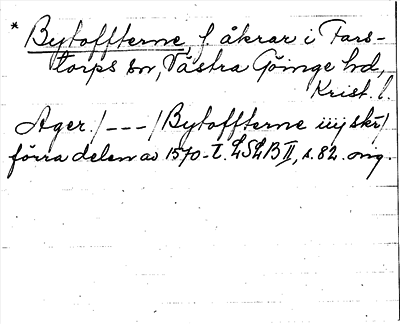 * Bytoffterne, f. åkrar i Fars-
torps sn, Västra Göinge hd,
Krist. l.
Ager /---/ Bytoffterne iiij skr/
förra delen av 1570-t. LSLB II, s. 82. orig.